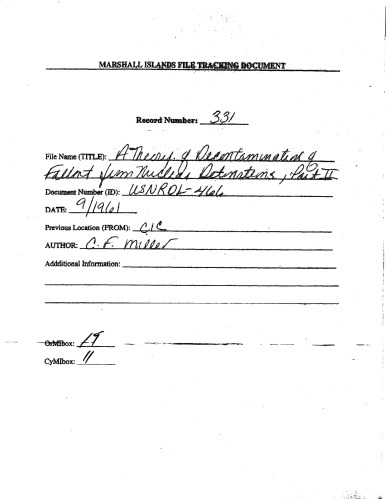 MARSHALL ISLANDS FILE TRACKING DOCUMENT
Record Number: 331
File Name (TITLE): A Theory of Decontamination of
Fallout from Nuclear Detonations, Part II
Document Number (ID): USNRDL-466
DATE: 9/1961
Previous Location (FROM): CIC
AUTHOR: C.F. Miller
Addditional Information:
OrMIbox: 19
CyMIbox: 11